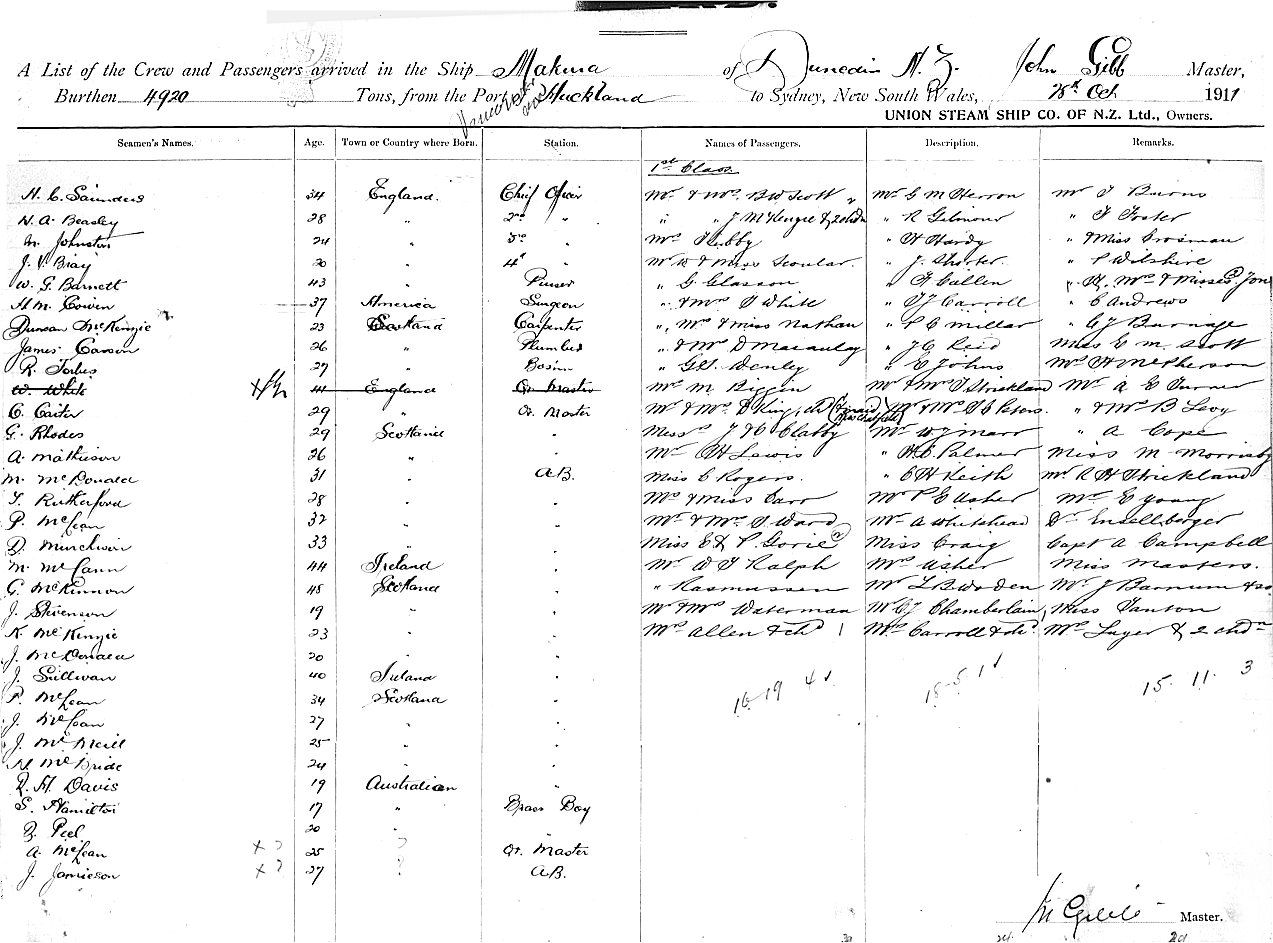 A List of the Crew and Passengers arrived in the Ship Makura of Dunedin N.Z. John Gibb Master,
Burthen 4920 Tons, from the Port Vancouver and Auckland to Sydney, New South Wales, 28th Oct 1911
UNION STEAM SHIP CO. OF N.Z. Ltd., Owners.
Seamen's Names. Age. Town or Country where Born. Station. Names of Passengers. Description. Remarks.
1st Class
H. C. Saunders 34 England. Chief Officer Mr & Mrs B W Scott Mr G M Herron Mr J Burns
N. A. Beasley 28 " 2nd " " " J McKenzie & 2 chdn " R Gilmour " F Foster
M. Johnston 24 " 3rd " Mrs Libby " H Hardy " Miss Crosman
J. V. Bray 20 " 4th " Mr R & Miss Scoular. " J. Shorter. " P Wilshire
W. G. Barnett 43 " Purser " G. Glasson " F Callen " H, Mrs & Misses (2) Jon
H. M. Cowen 37 America Surgeon " & Mrs S White " T J Carroll " C Andrews
Duncan McKenzie 23 Scotland Carpenter ", Mrs & Miss Nathan " P C Millar " G J Burnage
James Carson 26 " Plumber " & Mrs D Macaulay " J C Reid Miss E. M. Scott
R. Forbes 27 " Bosun " G. W. Denley " E Johns Mrs H McPherson
W. White 41 England Qr Master Mrs M Biggin Mr & Mrs J Strickland Mr A E Turner
C. Carter 29 " Qr. Master Mr & Mrs D King, chd & maid (Miss Chatfield) Mr & Mrs S C Peters. " & Mrs B Levy
G. Rhodes 29 Scotland " Misses J & C Clabby Mr W J Marr " A Cope
A. Mathieson 26 " " Mr H Lewis " H. C. Palmer Miss M Mornisby
M. McDonald 31 " A.B. Miss C Rogers. " C H Keith Mr R H Strickland
T. Rutherford 28 " " Mrs & Miss Carr Mr P E Usher Mr E Young
P. McLean 32 " " Mr & Mrs S Ward Mr A Whitehead Dr Ensellberger
D. Murchison 33 " " Miss E & P. Gorie (2) Miss Craig Capt A Campbell
M. McCann 44 Ireland " Mr W T Ralph Mrs Usher Miss Masters.
G. McKinnon 48 Scotland " " Rasmussen Mr L B Worden Mr J Barnum & so
J. Stevenson 19 " " Mr & Mrs Waterman Mr C J Chamberlain Miss Tanton
K. McKenzie 23 " " Mrs Allen & chd 1 Mrs Carroll & chd Mrs Luyer & 2 chdn
J. McDonald 20 " "
J. Sullivan 40 Ireland "
P. McLean 34 Scotland " 16 19 4 1 18 5 1 1 15. 11. 3
J. McLean 27 " "
J. McNeill 25 " "
N. McBride 24 " "
R. H. Davis 19 Australian "
S. Hamilton 17 " Brass Boy
Z. Peel 20 " "
A. McLean x ? 25 ? Qr. Master
J. Jamieson x ? 27 ? A.B.
J Gibb Master.